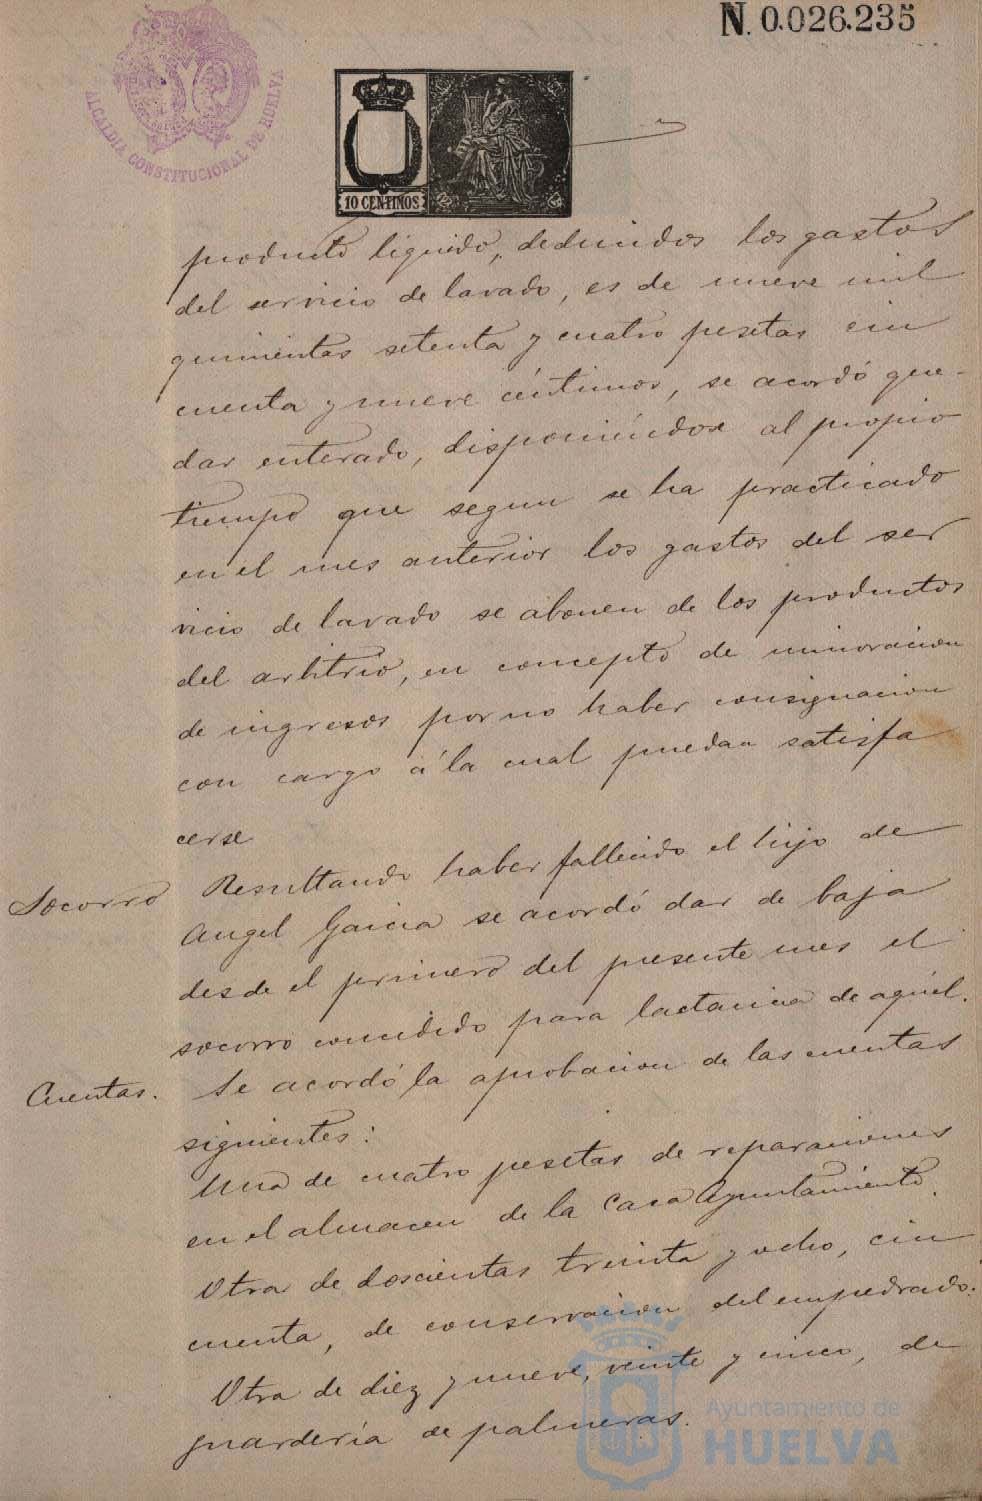 N. 0.026.235
ALCALDIA CONSTITUCIONAL DE HUELVA
10 CENTIMOS
producto liquido, deducidos los gastos
del servicio de lavado, es de nueve mil
quinientas setenta y cuatro pesetas cin
cuenta y nueve céntimos, se acordó que-
dar enterado, disponiéndose al propio
tiempo que segun se ha practicado
en el mes anterior los gastos del ser
vicio de lavado se abonen de los productos
del arbitrio, en concepto de minoracion
de ingresos por no haber consignacion
con cargo á la cual puedan satisfa
cerse
Socorro Resultando haber fallecido el hijo de
Angel Garcia se acordó dar de baja
desde el primero del presente mes el
socorro concedido para lactancia de aquel.
Cuentas. Se acordó la aprobacion de las cuentas
siguientes:
Una de cuatro pesetas de reparaciones
en el almacen de la Casa Ayuntamiento.
Otra de doscientas treinta y ocho, cin
cuenta, de conservacion del empedrado.
Otra de diez y nueve, veinte y cinco, de
guardería de palmeras.
Ayuntamiento de
HUELVA